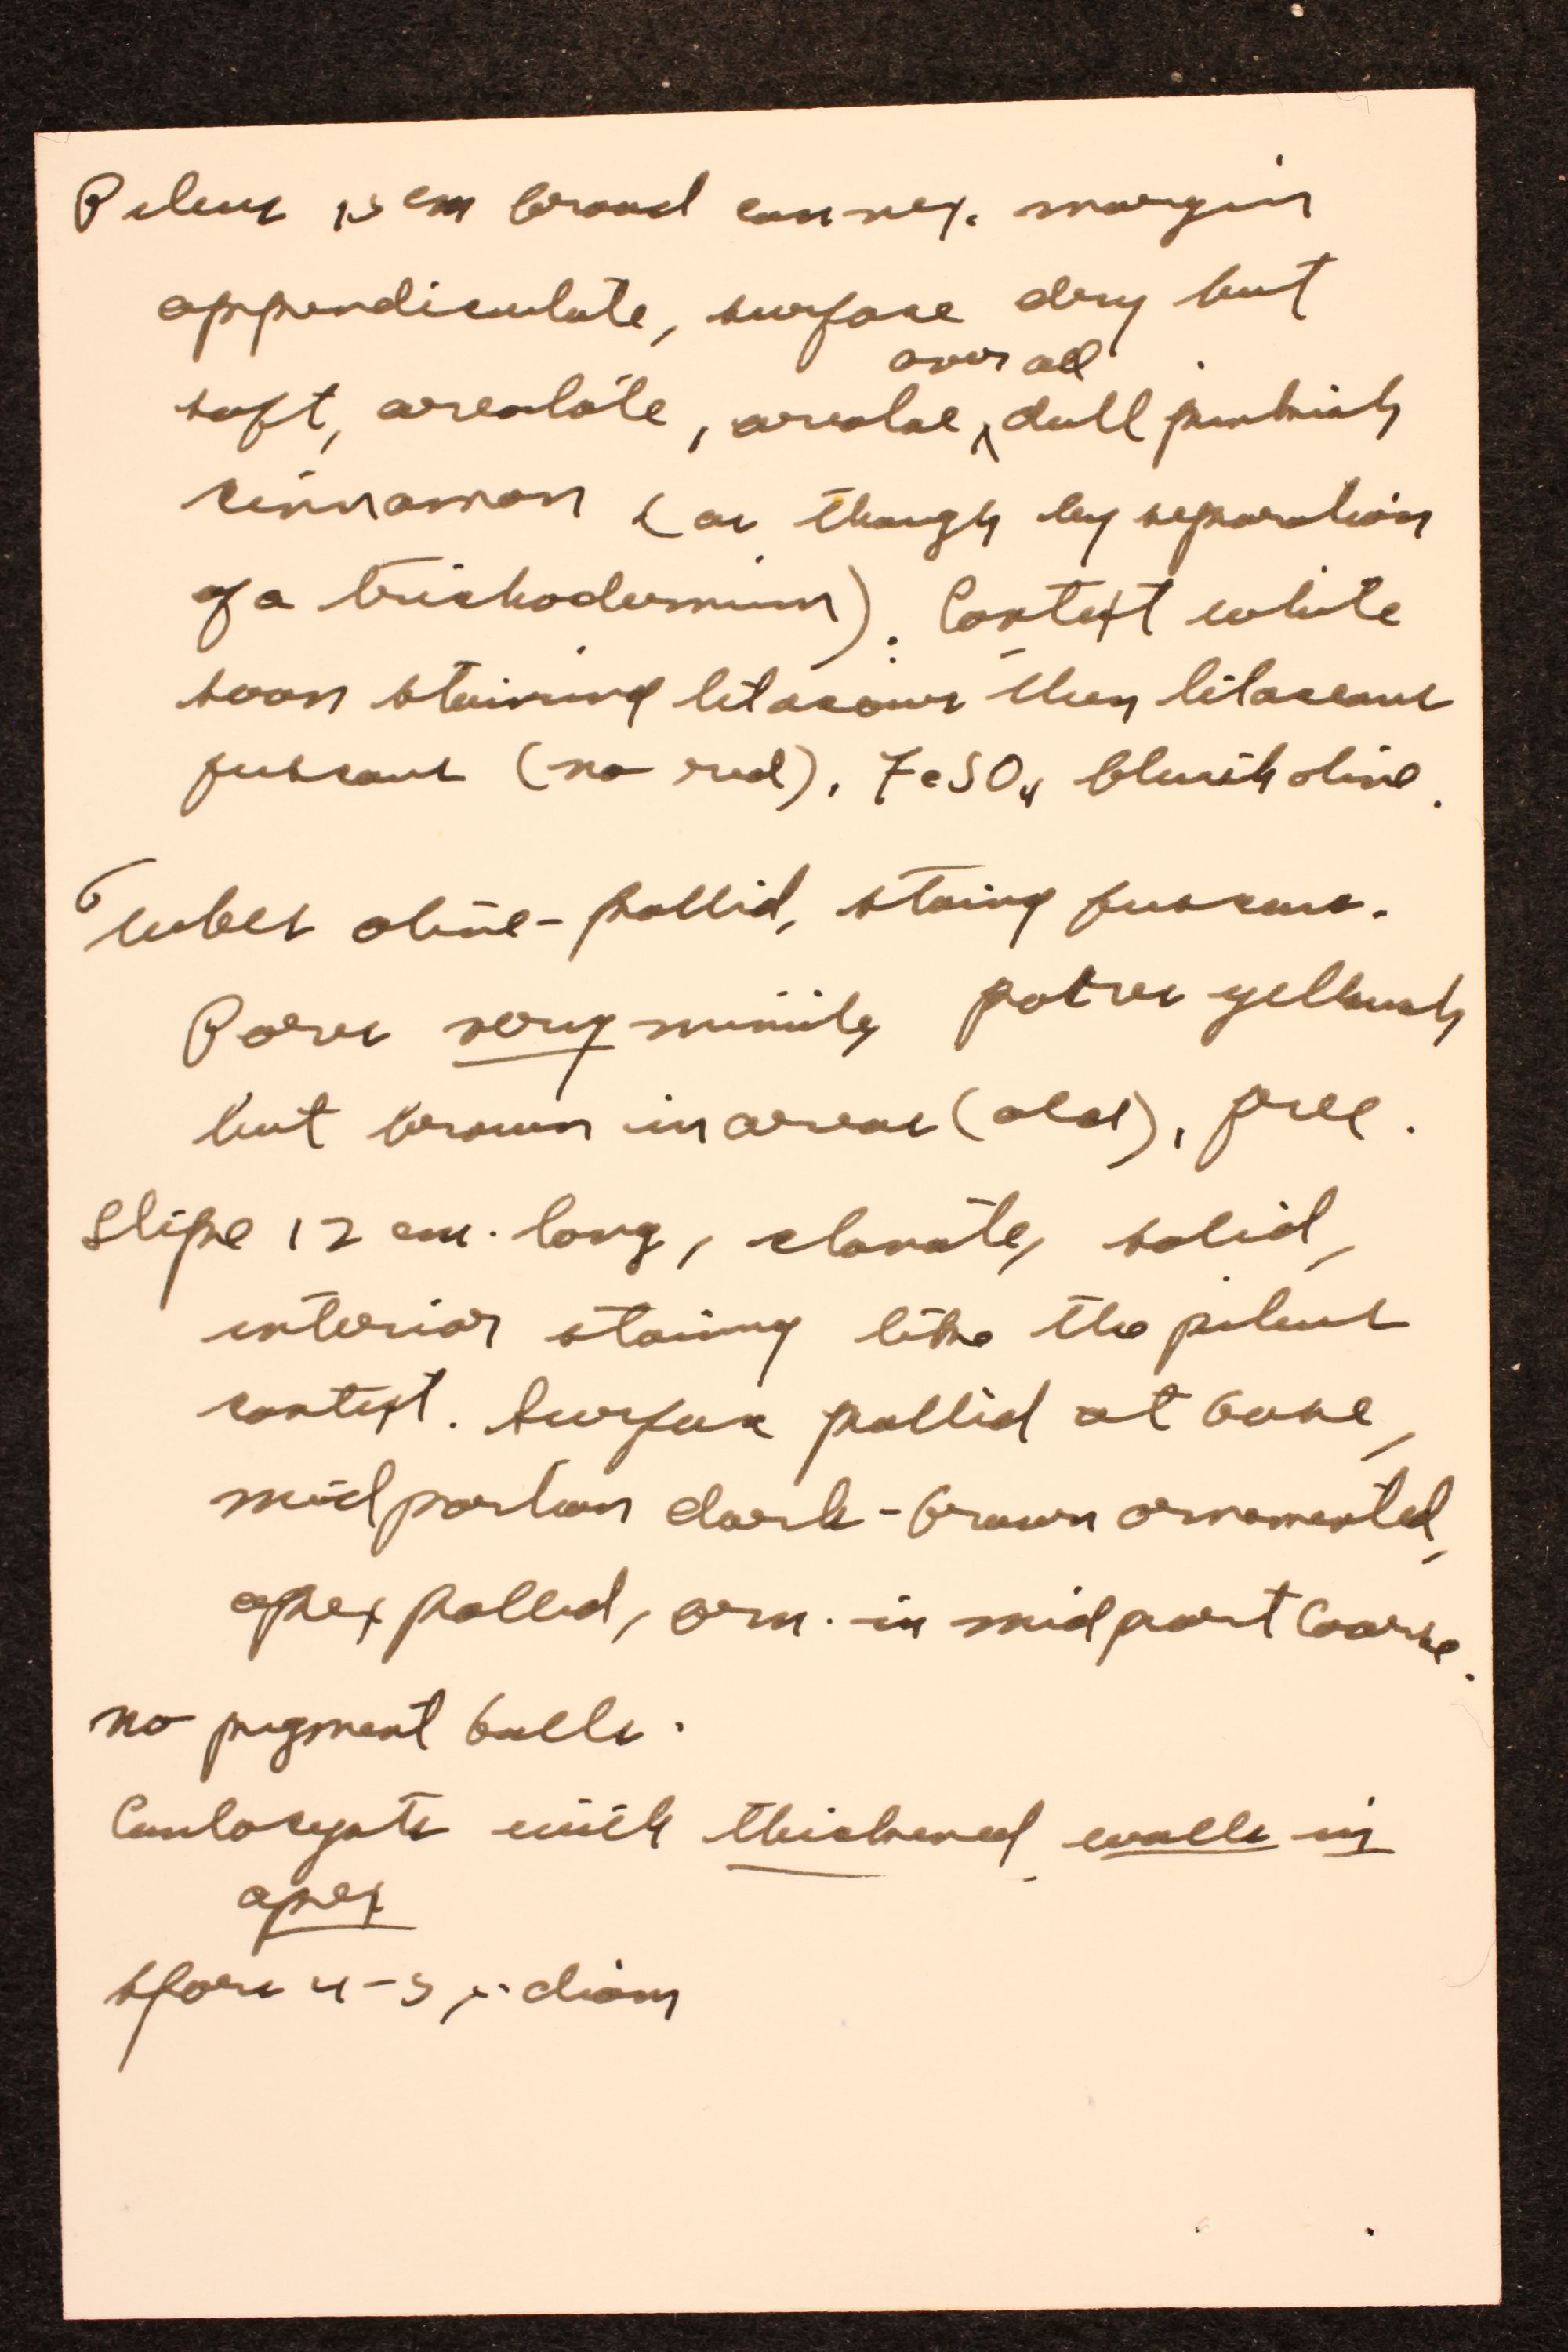 Pileus 15 cm broad convex. margin
appendiculate, surface dry but
over all
soft, areolate, areolae ^ dull pinkish
cinnamon (as though by separation
of a trichodermium). Context white
soon staining lilaceous then lilaceous
fuscous (no red), FeSO4 bluish olive.
Tubes olive-pallid, staing fuscous.
Pores very minute, patres yellowish
but brown in areas (old), free.
Stipe 12 cm. long, clavate, solid,
interior staining like the pileus
context. Surface pallid at base,
midportion dark-brown ornamented,
apex pallid, orn. in midpart coarse.
no pigment balls.
Caulocysts with thickened walls in
apex
spore 4-5 µ diam